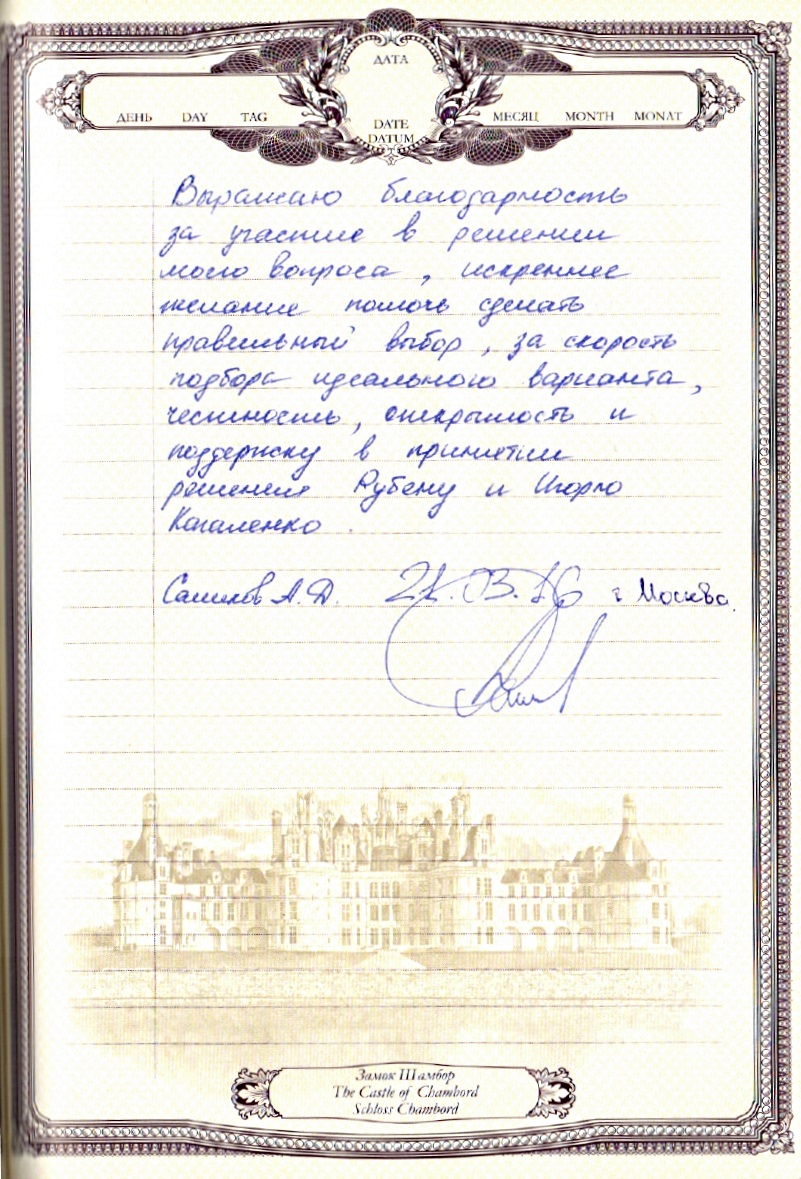 ДАТА
ДЕНЬ DAY TAG
DATE
DATUM
МЕСЯЦ MONTH MONAT
Выражаю благодарность
за участие в решении
моего вопроса, искреннее
желание помочь сделать
правильный выбор, за скорость
подбора идеального варианта,
честность, открытость и
поддержку в принятии
решения Рубену и Игорю
Коваленко.
А.Д. 03.16 г Москва.
Замок Шамбор
The Castle of Chambord
Schloss Chambord